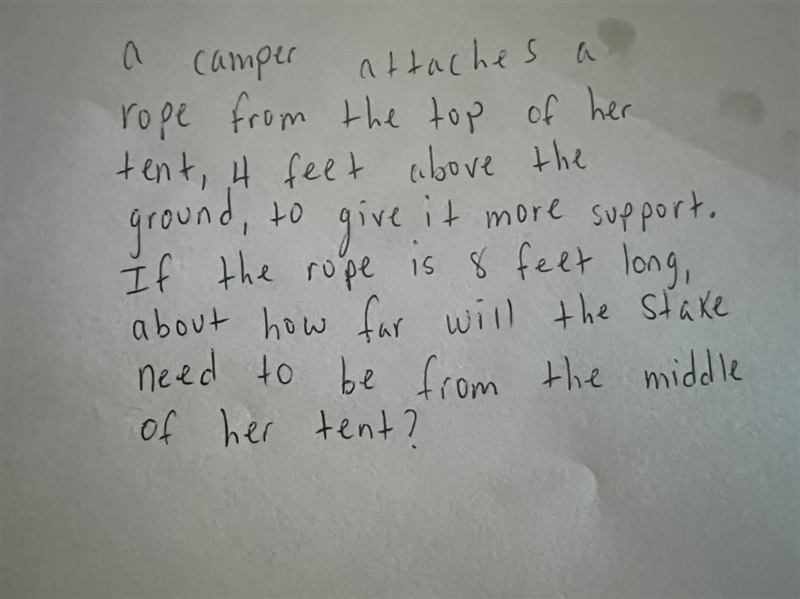 a camper attaches a
rope from the top of her
tent, 4 feet above the
ground, to give it more support.
If the rope is 8 feet long,
about how far will the stake
need to be from the middle
of her tent?